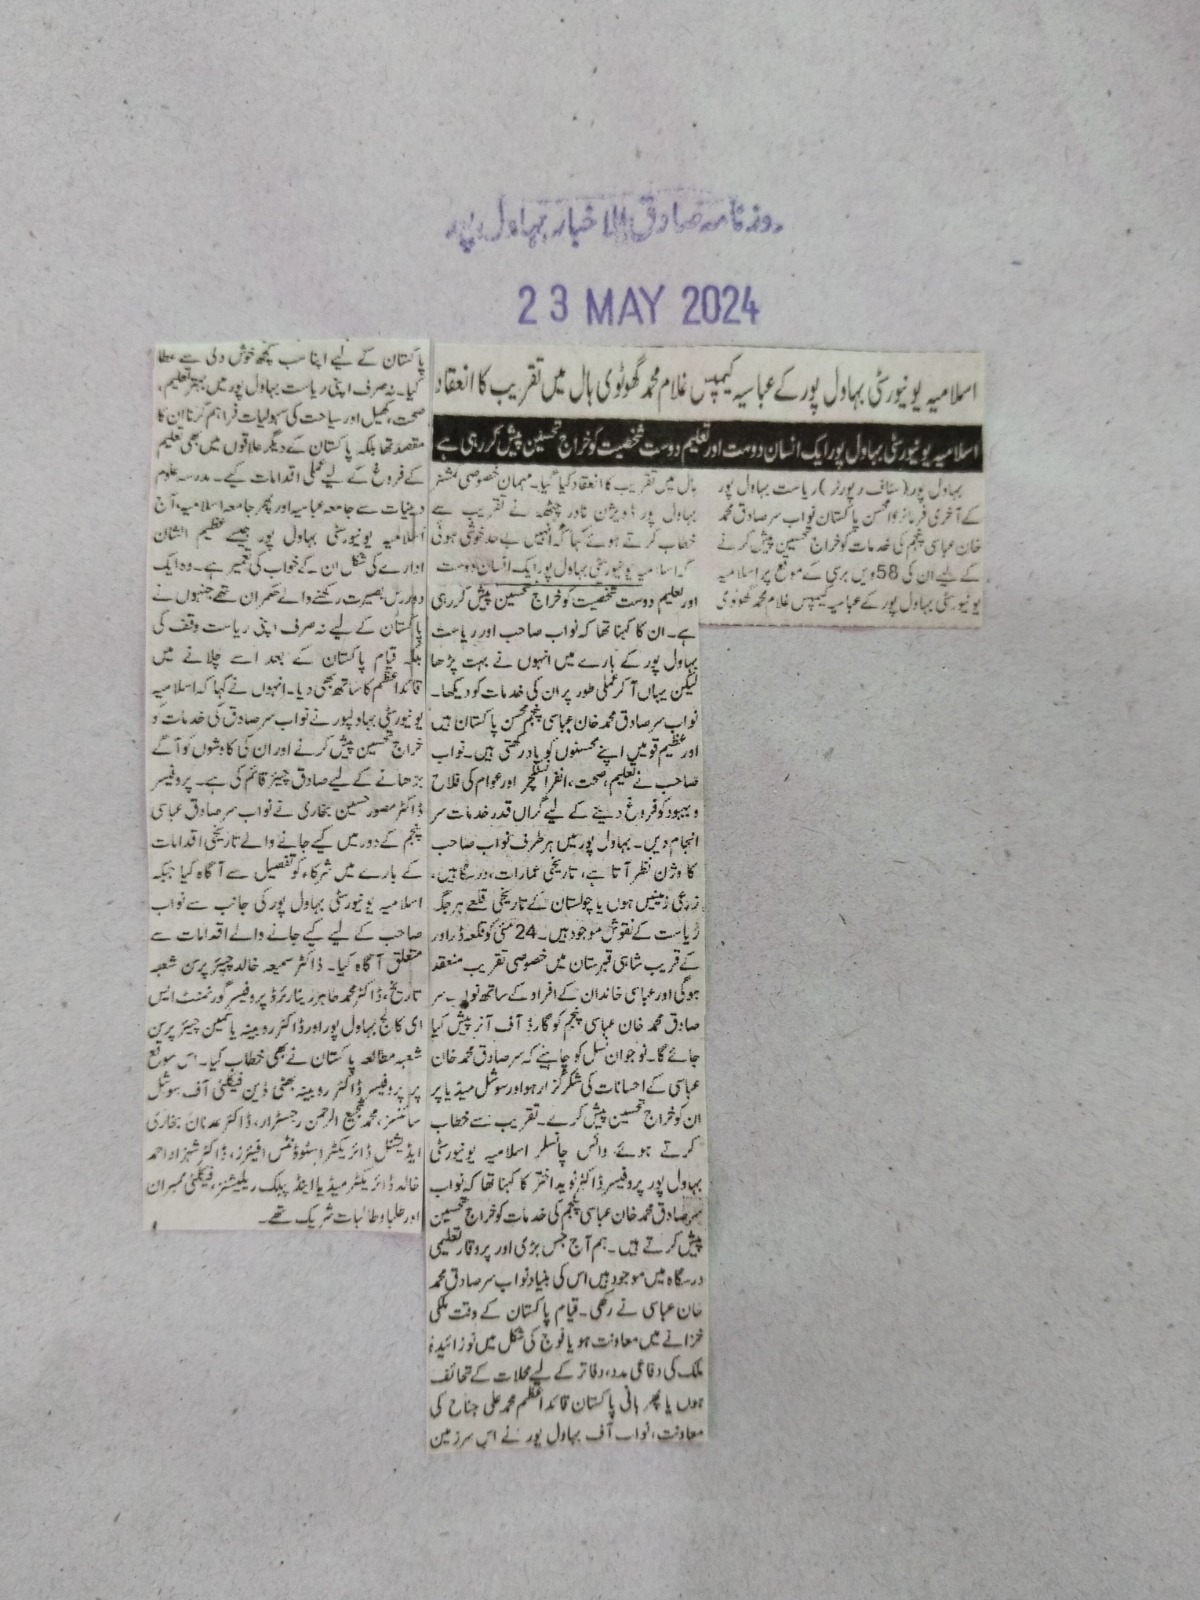 روزنامہ صادق الاخبار بہاول پور
23 MAY 2024
اسلامیہ یونیورسٹی بہاول پور کے عباسیہ کیمپس غلام محمد گھوٹوی ہال میں تقریب کا انعقاد
اسلامیہ یونیورسٹی بہاول پور ایک انسان دوست اور تعلیم دوست شخصیت کو خراج تحسین پیش کر رہی ہے
بہاول پور (سٹاف رپورٹر) ریاست بہاول پور
کے آخری فرمانروا محسن پاکستان نواب سر صادق محمد
خان عباسی پنجم کی خدمات کو خراج تحسین پیش کرنے
کے لیے ان کی 58ویں برسی کے موقع پر اسلامیہ
یونیورسٹی بہاول پور کے عباسیہ کیمپس غلام محمد گھوٹوی
ہال میں تقریب کا انعقاد کیا گیا۔ مہمان خصوصی کمشنر
بہاول پور ڈویژن نادر چٹھہ نے تقریب سے
خطاب کرتے ہوئے کہا کہ انہیں بے حد خوشی ہوئی
کہ اسلامیہ یونیورسٹی بہاول پور ایک انسان دوست
اور تعلیم دوست شخصیت کو خراج تحسین پیش کر رہی
ہے۔ ان کا کہنا تھا کہ نواب صاحب اور ریاست
بہاول پور کے بارے میں انہوں نے بہت پڑھا
لیکن یہاں آ کر عملی طور پر ان کی خدمات کو دیکھا۔
نواب سر صادق محمد خان عباسی پنجم محسن پاکستان ہیں
اور عظیم قومیں اپنے محسنوں کو یاد رکھتی ہیں۔ نواب
صاحب نے تعلیم، صحت، انفراسٹکچر اور عوام کی فلاح
و بہبود کو فروغ دینے کے لیے گراں قدر خدمات سر
انجام دیں۔ بہاول پور میں ہر طرف نواب صاحب
کا وژن نظر آتا ہے، تاریخی عمارات، درسگاہیں،
زرعی زمینیں ہوں یا چولستان کے تاریخی قلعے ہر جگہ
ریاست کے نقوش موجود ہیں۔ 24 مئی کو قلعہ ڈراور
کے قریب شاہی قبرستان میں خصوصی تقریب منعقد
ہوگی اور عباسی خاندان کے افراد کے ساتھ نواب سر
صادق محمد خان عباسی پنجم کو گارڈ آف آنر پیش کیا
جائے گا۔ نوجوان نسل کو چاہیئے کہ سر صادق محمد خان
عباسی کے احسانات کی شکر گزار ہو اور سوشل میڈیا پر
ان کو خراج تحسین پیش کرے۔ تقریب سے خطاب
کرتے ہوئے وائس چانسلر اسلامیہ یونیورسٹی
بہاول پور پروفیسر ڈاکٹر نوید اختر کا کہنا تھا کہ نواب
سر صادق محمد خان عباسی پنجم کی خدمات کو خراج تحسین
پیش کرتے ہیں۔ ہم آج جس بڑی اور پروقار تعلیمی
درسگاہ میں موجود ہیں اس کی بنیاد نواب سر صادق محمد
خان عباسی نے رکھی۔ قیام پاکستان کے وقت ملکی
خزانے میں معاونت ہو یا فوج کی شکل میں نوزائیدہ
ملک کی دفاعی مدد، دفاتر کے لیے محلات کے تحائف
ہوں یا پھر بانی پاکستان قائد اعظم محمد علی جناح کی
معاونت، نواب آف بہاول پور نے اس سرزمین
پاکستان کے لیے اپنا سب کچھ خوش دلی سے عطا
کیا۔ نہ صرف اپنی ریاست بہاول پور میں بہتر تعلیم،
صحت، کھیل اور سیاحت کی سہولیات فراہم کرنا ان کا
مقصد تھا بلکہ پاکستان کے دیگر علاقوں میں بھی تعلیم
کے فروغ کے لیے عملی اقدامات کیے۔ مدرسہ علوم
دینیات سے جامعہ عباسیہ اور پھر جامعہ اسلامیہ، آج
اسلامیہ یونیورسٹی بہاول پور جیسے عظیم الشان
ادارے کی شکل ان کے خواب کی تعبیر ہے۔ وہ ایک
دوررس بصیرت رکھنے والے حکمران تھے جنہوں نے
پاکستان کے لیے نہ صرف اپنی ریاست وقف کی
بلکہ قیام پاکستان کے بعد اسے چلانے میں
قائد اعظم کا ساتھ بھی دیا۔ انہوں نے کہا کہ اسلامیہ
یونیورسٹی بہاولپور نے نواب سر صادق کی خدمات کو
خراج تحسین پیش کرنے اور ان کی کاوشوں کو آگے
بڑھانے کے لیے صادق چیئر قائم کی ہے۔ پروفیسر
ڈاکٹر منصور حسین بخاری نے نواب سر صادق عباسی
پنجم کے دور میں کیے جانے والے تاریخی اقدامات
کے بارے میں شرکاء کو تفصیل سے آگاہ کیا جبکہ
اسلامیہ یونیورسٹی بہاول پور کی جانب سے نواب
صاحب کے لیے کیے جانے والے اقدامات سے
متعلق آگاہ کیا۔ ڈاکٹر سمیعہ خالد چیئر پرسن شعبہ
تاریخ، ڈاکٹر محمد طاہر ریٹائرڈ پروفیسر گورنمنٹ ایس
ای کالج بہاول پور اور ڈاکٹر روبینہ یاسمین چیئر پرسن
شعبہ مطالعہ پاکستان نے بھی خطاب کیا۔ اس موقع
پر پروفیسر ڈاکٹر روبینہ بھٹی ڈین فیکلٹی آف سوشل
سائنسز، محمد شجیع الرحمن رجسٹرار، ڈاکٹر عدنان بخاری
ایڈیشنل ڈائریکٹر اسٹوڈنٹس افیئرز، ڈاکٹر شہزاد احمد
خالد ڈائریکٹر میڈیا اینڈ پبلک ریلیشنز، فیکلٹی ممبران
اور طلبا و طالبات شریک تھے۔